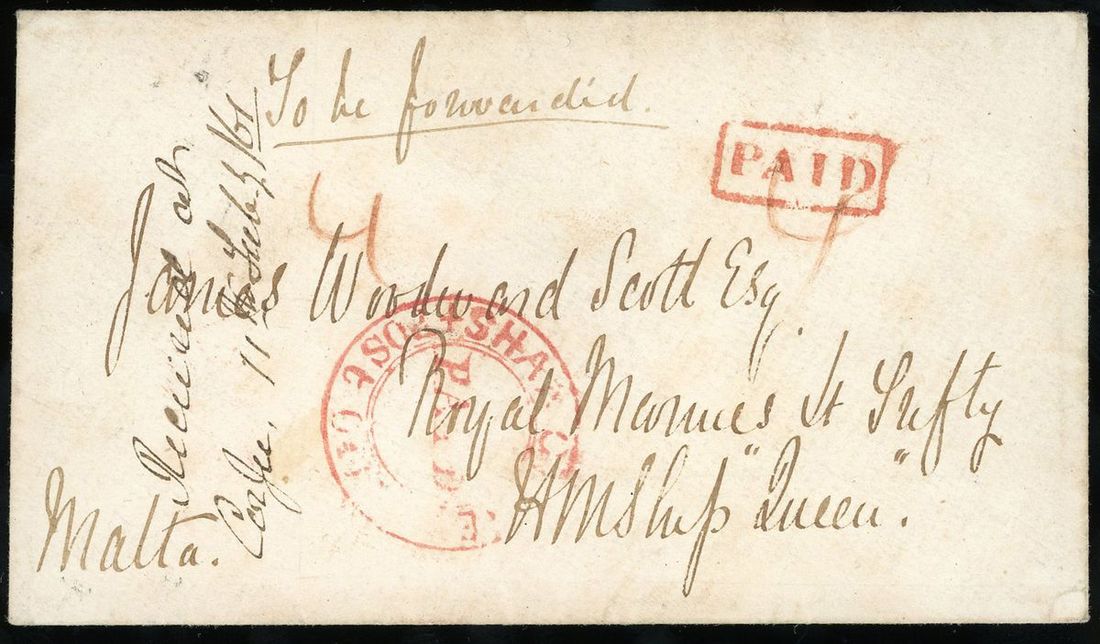 To be forwarded.
PAID
4
4
James Woodward Scott Esq.
Royal Marines Lt Infty
HMShip "Queen".
Malta.
Received at
Corfu, 11 Feb/61
POST OF
PAID